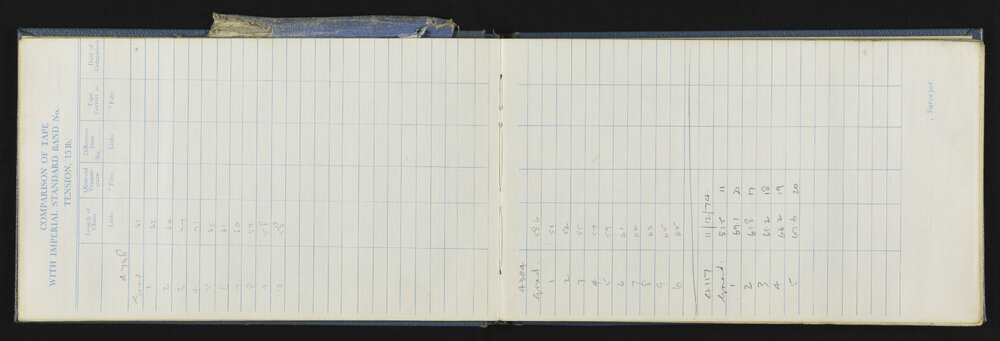 COMPARISON OF TAPE
WITH IMPERIAL STANDARD BAND No.
TENSION, 15 lb.
Length of Chain Observed Temperature Difference from No. Tape Correct at Date of Comparison
Links ° Faht. Links ° Faht.
A 738
Grad. 61
1 62
2
3
4
5 52
6
7 60
8 59
9 58
10 58
4304
Grad. 58.6
1 51
2 52
3 55
4 57
5 59
6 61
7 62
8 63
9 65
65
4117 11/12/74
Grad. 51.5 11
1 69.1 21
2 61.8 17
3 65.2 18
4 66.2 19
5 67.6 20
, Surveyor.